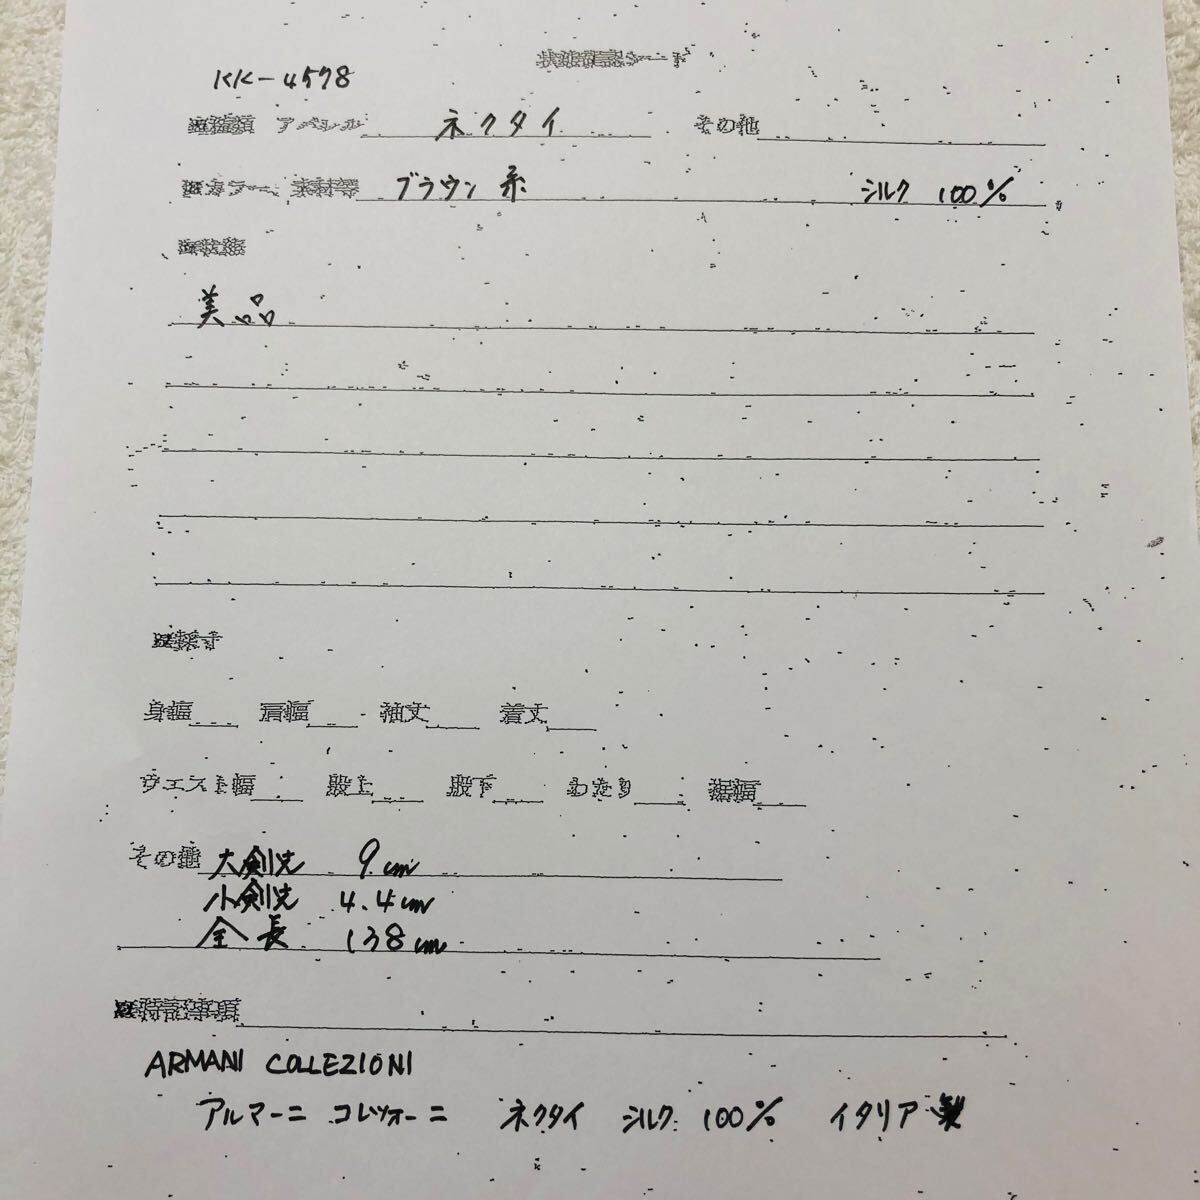 状態確認シート
KK-4578
種類 アパレル ネクタイ その他
カラー、素材等 ブラウン系 シルク 100%
状態
美品
採寸
身幅 肩幅 袖丈 着丈
ウエスト幅 股上 股下 わたり 裾幅
その他 大剣先 9cm
小剣先 4.4cm
全長 138cm
特記事項
ARMANI COLLEZIONI
アルマーニ コレツォーニ ネクタイ シルク 100% イタリア製